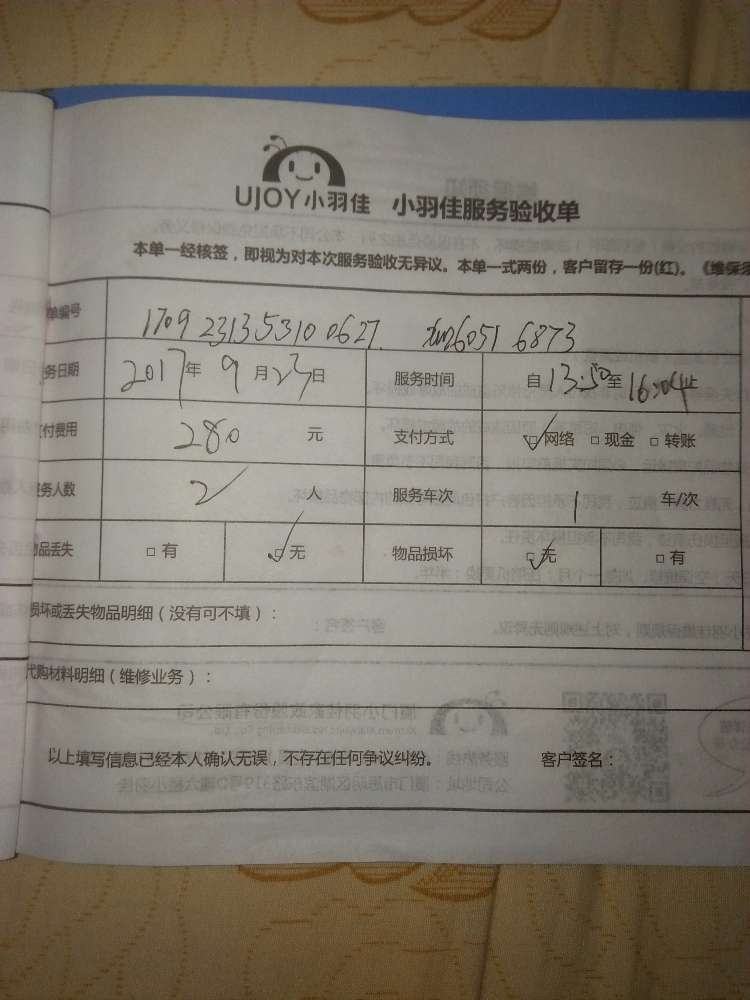 UJOY小羽佳 小羽佳服务验收单
本单一经核签，即视为对本次服务验收无异议。本单一式两份，客户留存一份(红)。《维保须
单编号 1709 2313 5310 0627. 6051 6873
务日期 2017年 9月23日 服务时间 自13:50至16:04止
支付费用 280 元 支付方式 ☑网络 □现金 □转账
服务人数 2 人 服务车次 1 车/次
物品丢失 □有 ☑无 物品损坏 ☑无 □有
损坏或丢失物品明细（没有可不填）：
代购材料明细（维修业务）：
以上填写信息已经本人确认无误，不存在任何争议纠纷。 客户签名：